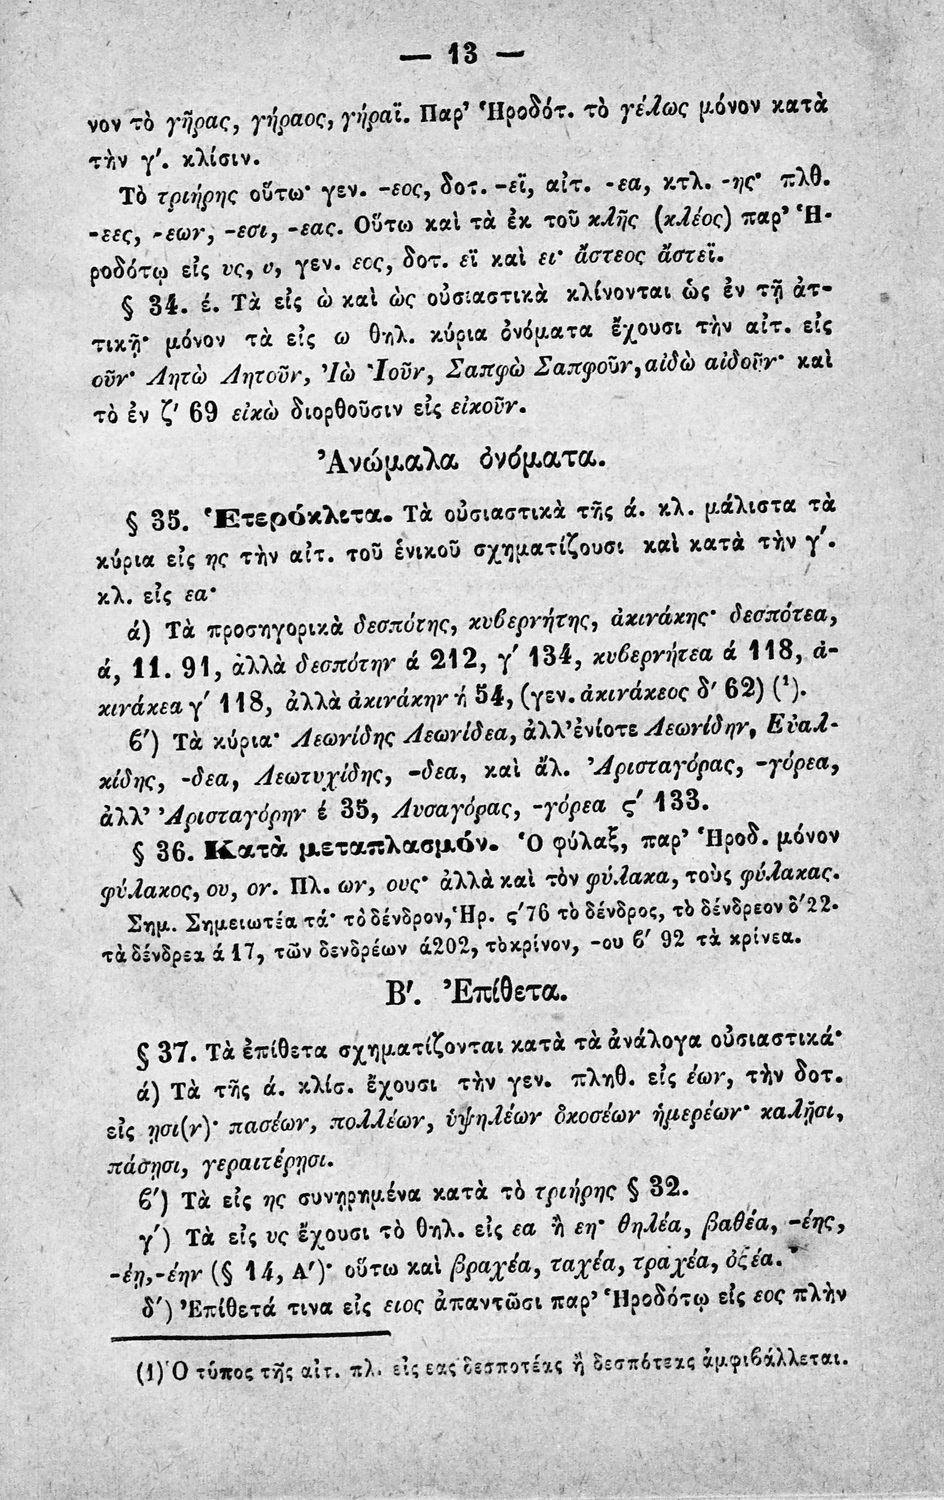 — 13 —
νον τὸ γῆρας, γήραος, γήραϊ. Παρ' Ἡροδότ. τὸ γέλως μόνον κατὰ
τὴν γ'. κλίσιν.
Τὸ τριήρης οὕτω· γεν. -εος, δοτ. -εϊ, αἰτ. -εα, κτλ. -ης· πλθ.
-εες, -εων, -εσι, -εας. Οὕτω καὶ τὰ ἐκ τοῦ κλῆς (κλέος) παρ' Ἡ-
ροδότῳ εἰς υς, υ, γεν. εος, δοτ. εϊ καὶ ει· ἄστεος ἄστεϊ.
§ 34. έ. Τὰ εἰς ὼ καὶ ὼς οὐσιαστικὰ κλίνονται ὡς ἐν τῇ ἀτ-
τικῇ· μόνον τὰ εἰς ω θηλ. κύρια ὀνόματα ἔχουσι τὴν αἰτ. εἰς
οῦν· Λητὼ Λητοῦν, Ἰὼ Ἰοῦν, Σαπφὼ Σαπφοῦν, αἰδὼ αἰδοῦν· καὶ
τὸ ἐν ζ' 69 εἰκὼ διορθοῦσιν εἰς εἰκοῦν.
Ἀνώμαλα ὀνόματα.
§ 35. Ἑτερόκλιτα. Τὰ οὐσιαστικὰ τῆς ά. κλ. μάλιστα τὰ
κύρια εἰς ης τὴν αἰτ. τοῦ ἑνικοῦ σχηματίζουσι καὶ κατὰ τὴν γ'.
κλ. εἰς εα·
ά) Τὰ προσηγορικὰ δεσπότης, κυβερνήτης, ἀκινάκης· δεσπότεα,
ά, 11. 91, ἀλλὰ δεσπότην ά 212, γ' 134, κυβερνήτεα ά 118, ἀ-
κινάκεα γ' 118, ἀλλὰ ἀκινάκην ή 54, (γεν. ἀκινάκεος δ' 62) (¹).
β') Τὰ κύρια· Λεωνίδης Λεωνίδεα, ἀλλ' ἐνίοτε Λεωνίδην, Εὐαλ-
κίδης, -δεα, Λεωτυχίδης, -δεα, καὶ ἄλ. Ἀρισταγόρας, -γόρεα,
ἀλλ' Ἀρισταγόρην έ 35, Λυσαγόρας, -γόρεα ς' 133.
§ 36. Κατὰ μεταπλασμόν. Ὁ φύλαξ, παρ' Ἡροδ. μόνον
φύλακος, ου, ον. Πλ. ων, ους· ἀλλὰ καὶ τὸν φύλακα, τοὺς φύλακας.
Σημ. Σημειωτέα τά· τὸ δένδρον, Ἡρ. ς' 76 τὸ δένδρος, τὸ δένδρεον δ' 22·
τὰ δένδρεα ά 17, τῶν δενδρέων ά 202, τὸ κρίνον, -ου β' 92 τὰ κρίνεα.
Β'. Ἐπίθετα.
§ 37. Τὰ ἐπίθετα σχηματίζονται κατὰ τὰ ἀνάλογα οὐσιαστικά·
ά) Τὰ τῆς ά. κλίσ. ἔχουσι τὴν γεν. πληθ. εἰς έων, τὴν δοτ.
εἰς ῃσι(ν)· πασέων, πολλέων, ὑψηλέων ὁκοσέων ἡμερέων· καλῇσι,
πάσῃσι, γεραιτέρῃσι.
β') Τὰ εἰς ης συνῃρημένα κατὰ τὸ τριήρης § 32.
γ') Τὰ εἰς υς ἔχουσι τὸ θηλ. εἰς εα ἢ εη· θηλέα, βαθέα, -έης,
-έῃ, -έην (§ 14, Α')· οὕτω καὶ βραχέα, ταχέα, τραχέα, ὀξέα.
δ') Ἐπίθετά τινα εἰς ειος ἀπαντῶσι παρ' Ἡροδότῳ εἰς εος πλὴν
(1) Ὁ τύπος τῆς αἰτ. πλ. εἰς εας δεσποτέας ἢ δεσπότεας ἀμφιβάλλεται.